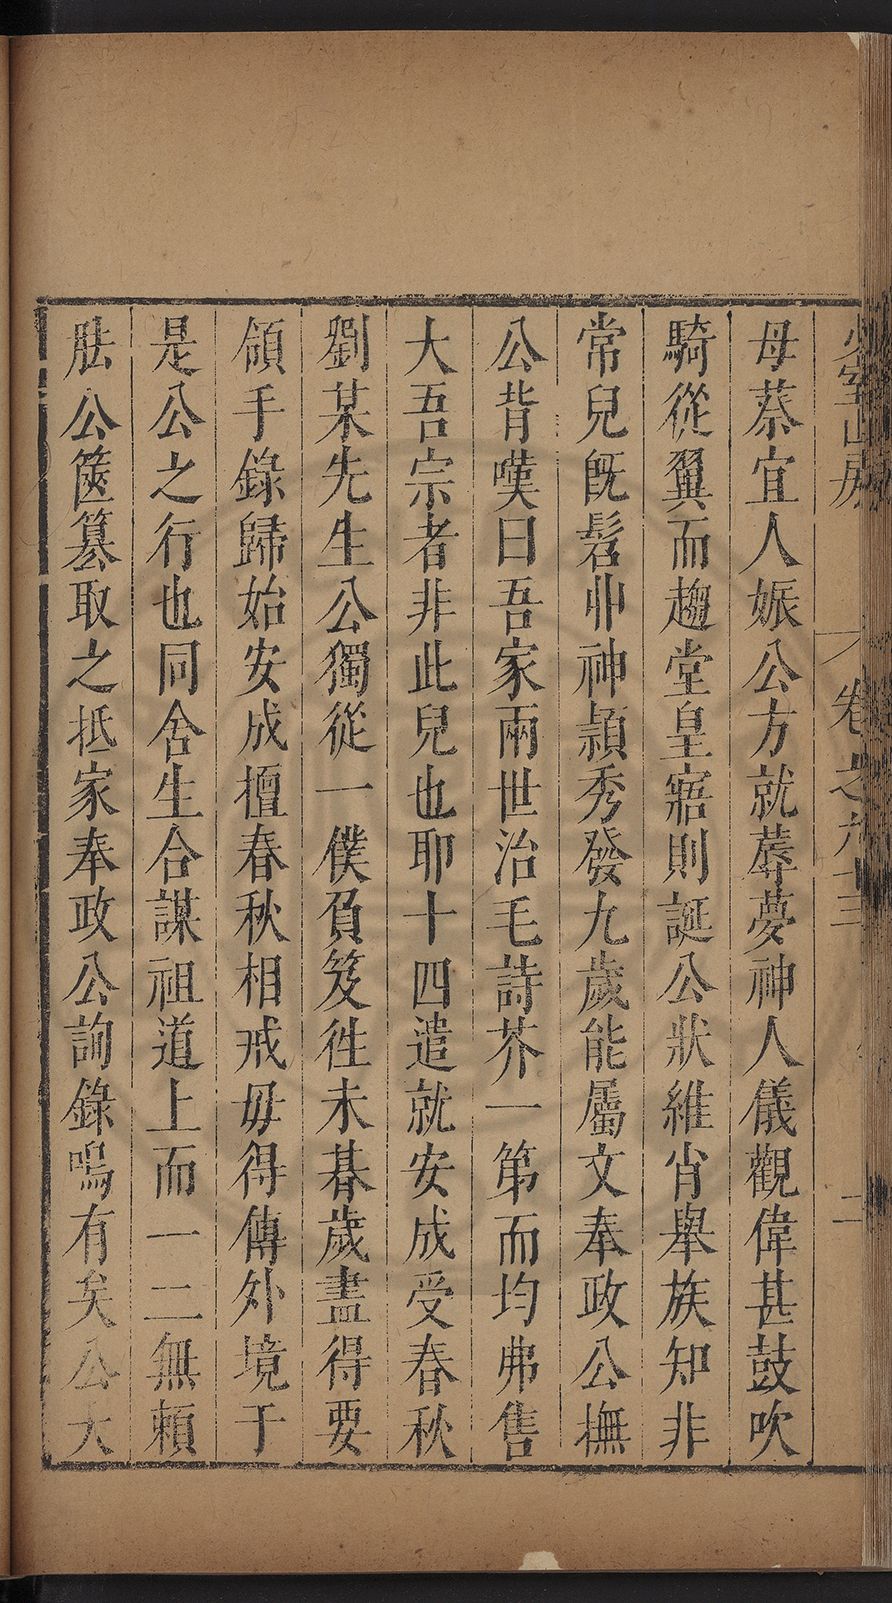 少室山房 卷之九十三 二
母蔡宜人娠公方就蓐夢神人儀觀偉甚鼓吹
騎從翼而趨堂皇寤則誕公狀維肖舉族知非
常兒旣髫丱神頴秀發九歲能屬文奉政公撫
公背嘆曰吾家兩世治毛詩芥一第而均弗售
大吾宗者非此兒也耶十四遣就安成受春秋
劉某先生公獨從一僕負笈徃未朞歲盡得要
領手錄歸始安成擅春秋相戒毋得傳外境于
是公之行也同舍生合謀祖道上而一二無頼
胠公篋篡取之抵家奉政公詢錄嗚有矣公大